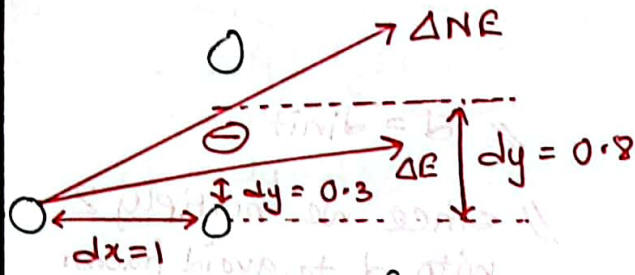 ΔNE
ΔE
dy = 0.8
dy = 0.3
dx=1